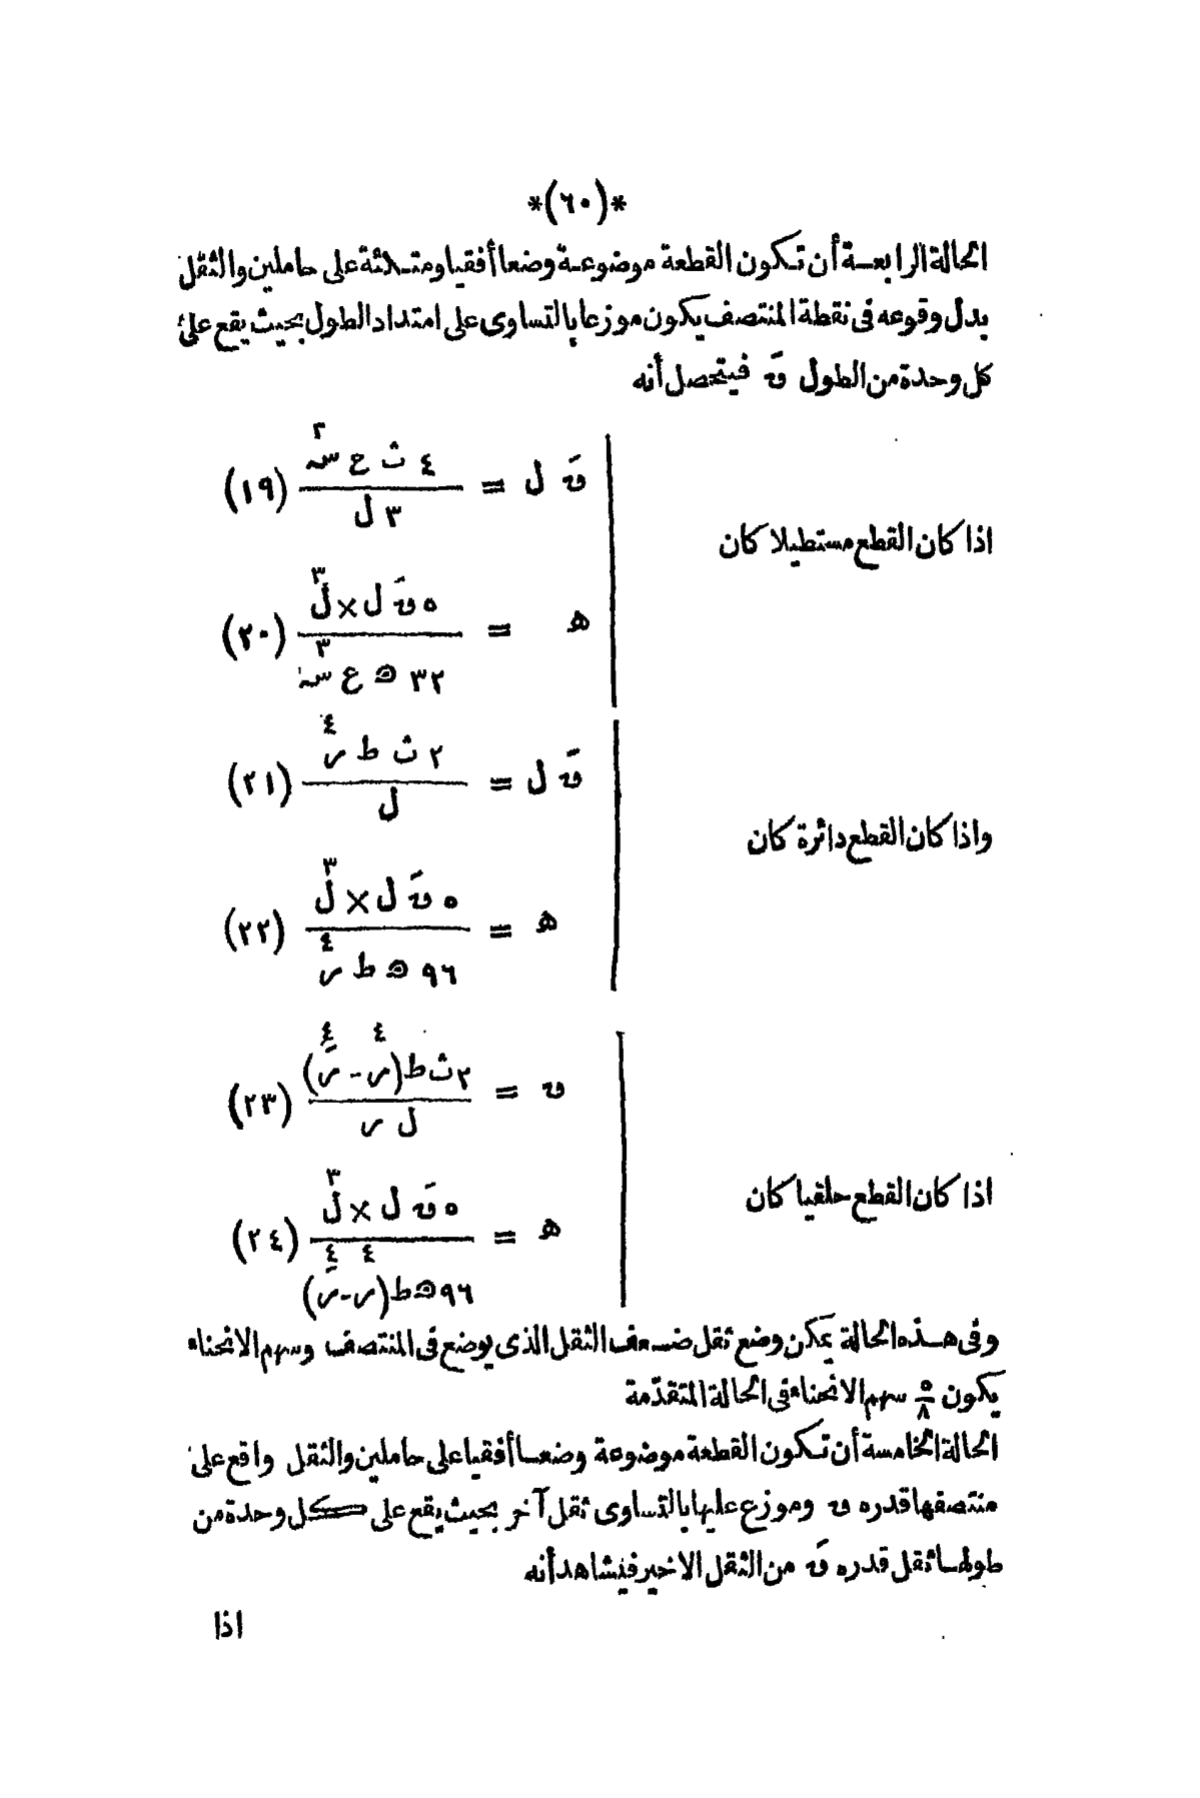 *(٦٠)*
الحالة الرابعة أن تكون القطعة موضوعة وضعا أفقيا ومتكئة على حاملين والثقل
بدل وقوعه فى نقطة المنتصف يكون موزعا بالتساوى على امتداد الطول بحيث يقع على
كل وحدة من الطول قَ فيتحصل أنه
قَ ل = ٤ ث ع سہ٢ / ٣ ل (١٩)
اذا كان القطع مستطيلا كان
ھ = ٥ قَ ل × ل٣ / ٣٢ ھ ع سہ٣ (٢٠)
قَ ل = ٢ ث ط ر٤ / ل (٢١)
واذا كان القطع دائرة كان
ھ = ٥ قَ ل × ل٣ / ٩٦ ھ ط ر٤ (٢٢)
ق = ٢ ث ط (ر٤ - رَ٤) / ل ر (٢٣)
اذا كان القطع حلقيا كان
ھ = ٥ قَ ل × ل٣ / ٩٦ ھ ط (ر٤ - رَ٤) (٢٤)
وفى هذه الحالة يمكن وضع ثقل ضعف الثقل الذى يوضع فى المنتصف وسهم الانحناء
يكون ٥/٨ سهم الانحناء فى الحالة المتقدّمة
الحالة الخامسة أن تكون القطعة موضوعة وضعا أفقيا على حاملين والثقل واقع على
منتصفها قدره ق وموزع عليها بالتساوى ثقل آخر بحيث يقع على كل وحدة من
طولها ثقل قدره قَ من الثقل الاخير فيشاهد أنه
اذا